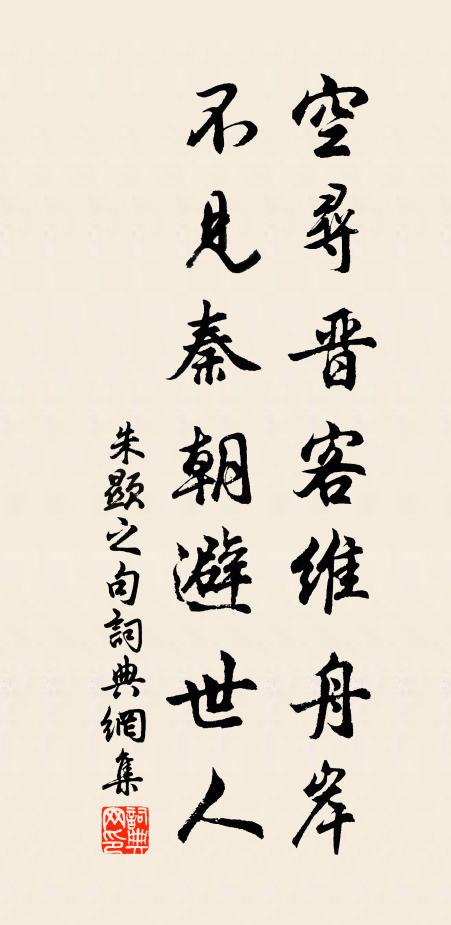 空尋晉客維舟岸
不見秦朝避世人
朱顯之句詞典網集
詞典網印